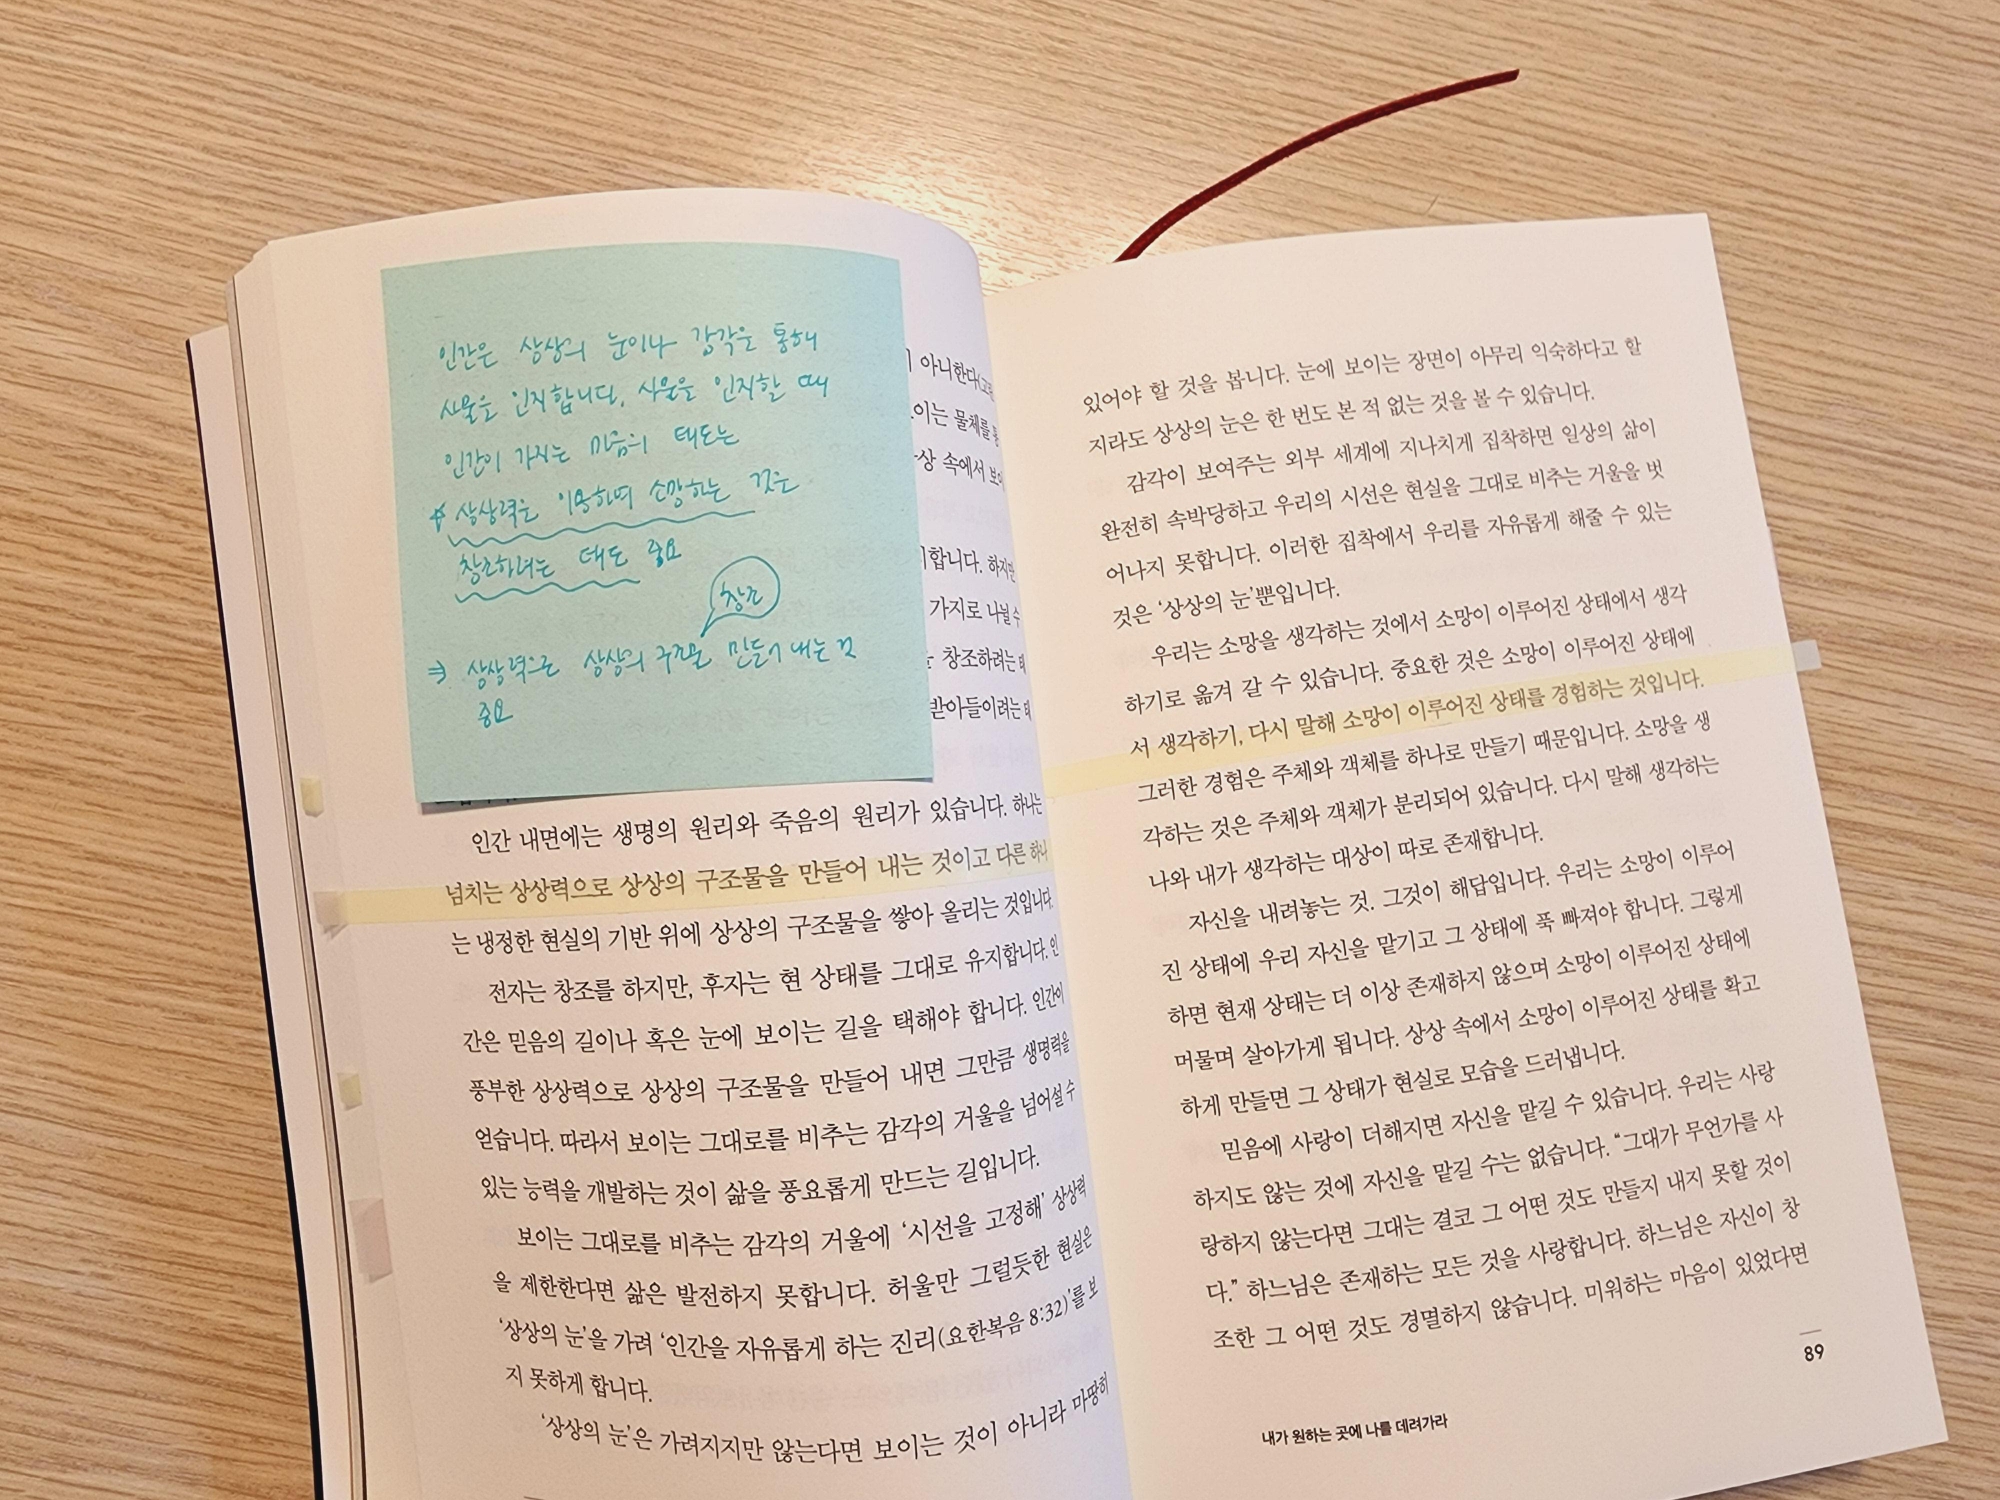 인간은 상상의 눈이나 감각을 통해
사물을 인지합니다. 사물을 인지할 때
인간이 가지는 마음의 태도는
☆ 상상력을 이용하며 소망하는 것을
창조하려는 태도 중요
창조
⇒ 상상력으로 상상의 구조물 만들어 내는 것
중요
아니한다(고린
보이는 물체를 통
상 속에서 보이
합니다. 하지만
가지로 나뉠 수
창조하려는 태
받아들이려는 태
인간 내면에는 생명의 원리와 죽음의 원리가 있습니다. 하나는
넘치는 상상력으로 상상의 구조물을 만들어 내는 것이고 다른 하나
는 냉정한 현실의 기반 위에 상상의 구조물을 쌓아 올리는 것입니다.
전자는 창조를 하지만, 후자는 현 상태를 그대로 유지합니다. 인
간은 믿음의 길이나 혹은 눈에 보이는 길을 택해야 합니다. 인간이
풍부한 상상력으로 상상의 구조물을 만들어 내면 그만큼 생명력을
얻습니다. 따라서 보이는 그대로를 비추는 감각의 거울을 넘어설 수
있는 능력을 개발하는 것이 삶을 풍요롭게 만드는 길입니다.
보이는 그대로를 비추는 감각의 거울에 ‘시선을 고정해’ 상상력
을 제한한다면 삶은 발전하지 못합니다. 허울만 그럴듯한 현실은
‘상상의 눈’을 가려 ‘인간을 자유롭게 하는 진리(요한복음 8:32)’를 보
지 못하게 합니다.
‘상상의 눈’은 가려지지만 않는다면 보이는 것이 아니라 마땅히
있어야 할 것을 봅니다. 눈에 보이는 장면이 아무리 익숙하다고 할
지라도 상상의 눈은 한 번도 본 적 없는 것을 볼 수 있습니다.
감각이 보여주는 외부 세계에 지나치게 집착하면 일상의 삶이
완전히 속박당하고 우리의 시선은 현실을 그대로 비추는 거울을 벗
어나지 못합니다. 이러한 집착에서 우리를 자유롭게 해줄 수 있는
것은 ‘상상의 눈’뿐입니다.
우리는 소망을 생각하는 것에서 소망이 이루어진 상태에서 생각
하기로 옮겨 갈 수 있습니다. 중요한 것은 소망이 이루어진 상태에
서 생각하기, 다시 말해 소망이 이루어진 상태를 경험하는 것입니다.
그러한 경험은 주체와 객체를 하나로 만들기 때문입니다. 소망을 생
각하는 것은 주체와 객체가 분리되어 있습니다. 다시 말해 생각하는
나와 내가 생각하는 대상이 따로 존재합니다.
자신을 내려놓는 것. 그것이 해답입니다. 우리는 소망이 이루어
진 상태에 우리 자신을 맡기고 그 상태에 푹 빠져야 합니다. 그렇게
하면 현재 상태는 더 이상 존재하지 않으며 소망이 이루어진 상태에
머물며 살아가게 됩니다. 상상 속에서 소망이 이루어진 상태를 확고
하게 만들면 그 상태가 현실로 모습을 드러냅니다.
믿음에 사랑이 더해지면 자신을 맡길 수 있습니다. 우리는 사랑
하지도 않는 것에 자신을 맡길 수는 없습니다. “그대가 무언가를 사
랑하지 않는다면 그대는 결코 그 어떤 것도 만들지 내지 못할 것이
다.” 하느님은 존재하는 모든 것을 사랑합니다. 하느님은 자신이 창
조한 그 어떤 것도 경멸하지 않습니다. 미워하는 마음이 있었다면
89
내가 원하는 곳에 나를 데려가라